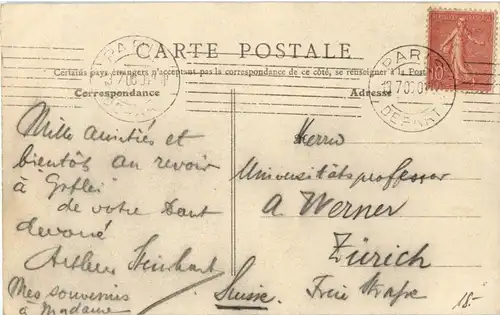 CARTE POSTALE
Certains pays étrangers n'acceptent pas la correspondance de ce côté, se renseigner à la Poste
Correspondance
Adresse
Mille amitiés et
bientôt au revoir
à
de votre tout
devoué
Mes souvenirs
à Madame
Herrn
Universitätsprofessor
A Werner
Zürich
Suisse. Freie Straße
PARIS
DEPART
PARIS
DEPART
10
18.-